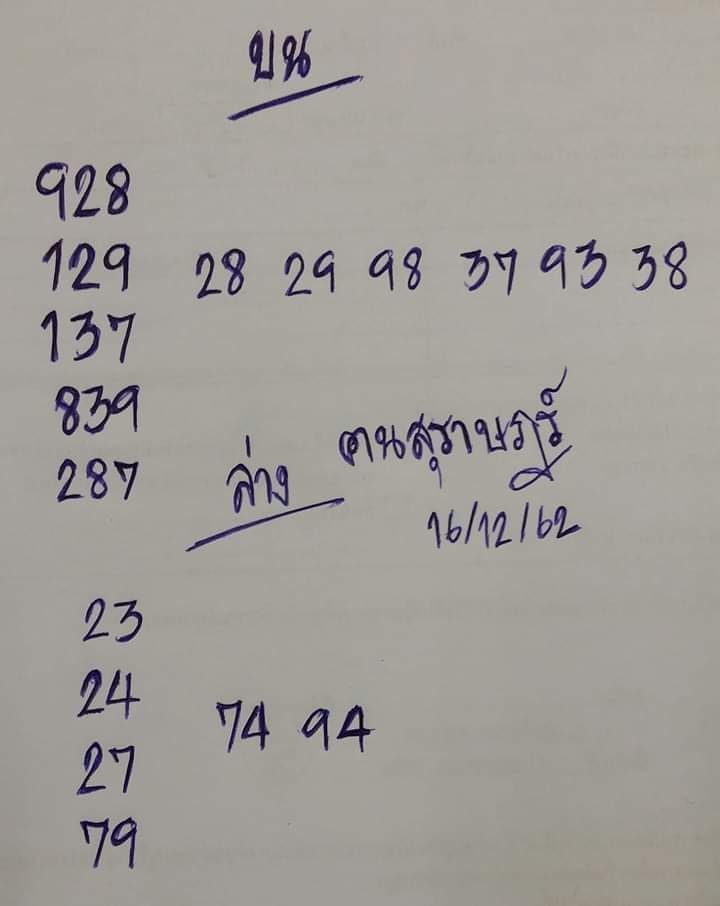 บน
928
129 28 29 98 37 93 38
137
839
287
ล่าง
คนสุราษฎร์
16/12/62
23
24
74 94
27
79